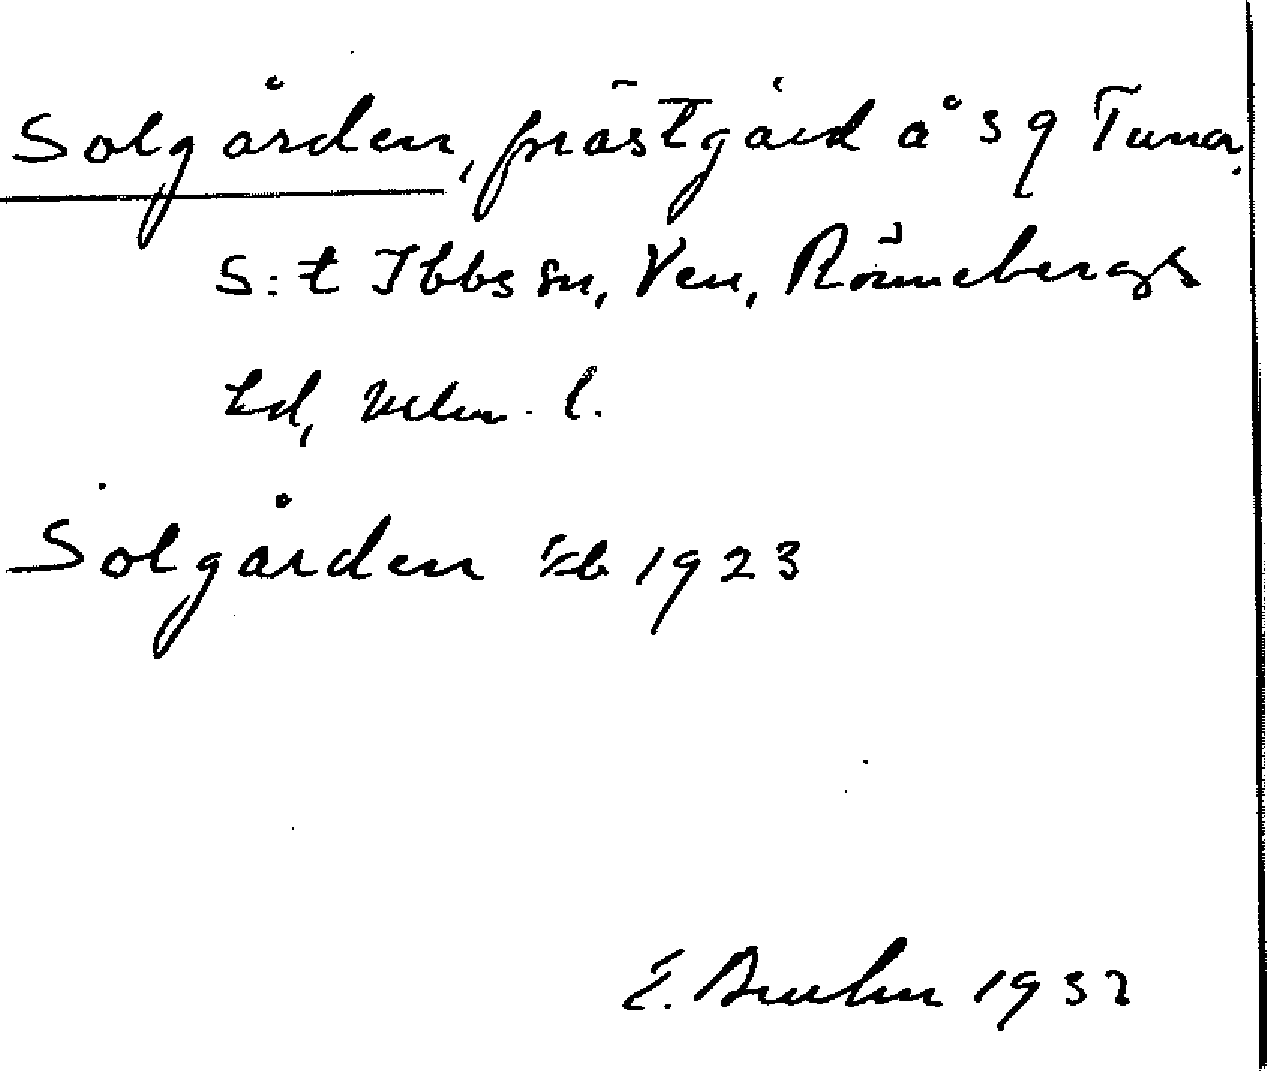 Solgården, prästgård å s 9 Tuna.
S:t Ibbs sn, Ven, Rönnebergs
hd, Mlm. l.
Solgården kb 1923
E. Bruhn 1932